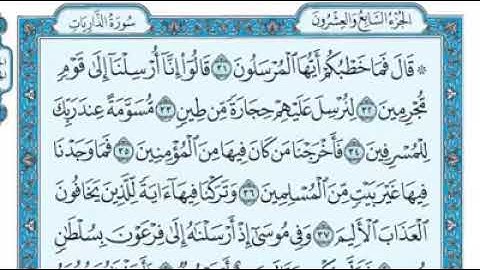 الجزء السابع والعشرون
سورة الذاريات
۞ قَالَ فَمَا خَطْبُكُمْ أَيُّهَا الْمُرْسَلُونَ ٣١ قَالُوا إِنَّا أُرْسِلْنَا إِلَىٰ قَوْمٍ
مُّجْرِمِينَ ٣٢ لِنُرْسِلَ عَلَيْهِمْ حِجَارَةً مِّن طِينٍ ٣٣ مُّسَوَّمَةً عِندَ رَبِّكَ
لِلْمُسْرِفِينَ ٣٤ فَأَخْرَجْنَا مَن كَانَ فِيهَا مِنَ الْمُؤْمِنِينَ ٣٥ فَمَا وَجَدْنَا
فِيهَا غَيْرَ بَيْتٍ مِّنَ الْمُسْلِمِينَ ٣٦ وَتَرَكْنَا فِيهَا ءَايَةً لِّلَّذِينَ يَخَافُونَ
الْعَذَابَ الْأَلِيمَ ٣٧ وَفِي مُوسَىٰ إِذْ أَرْسَلْنَٰهُ إِلَىٰ فِرْعَوْنَ بِسُلْطَٰنٍ